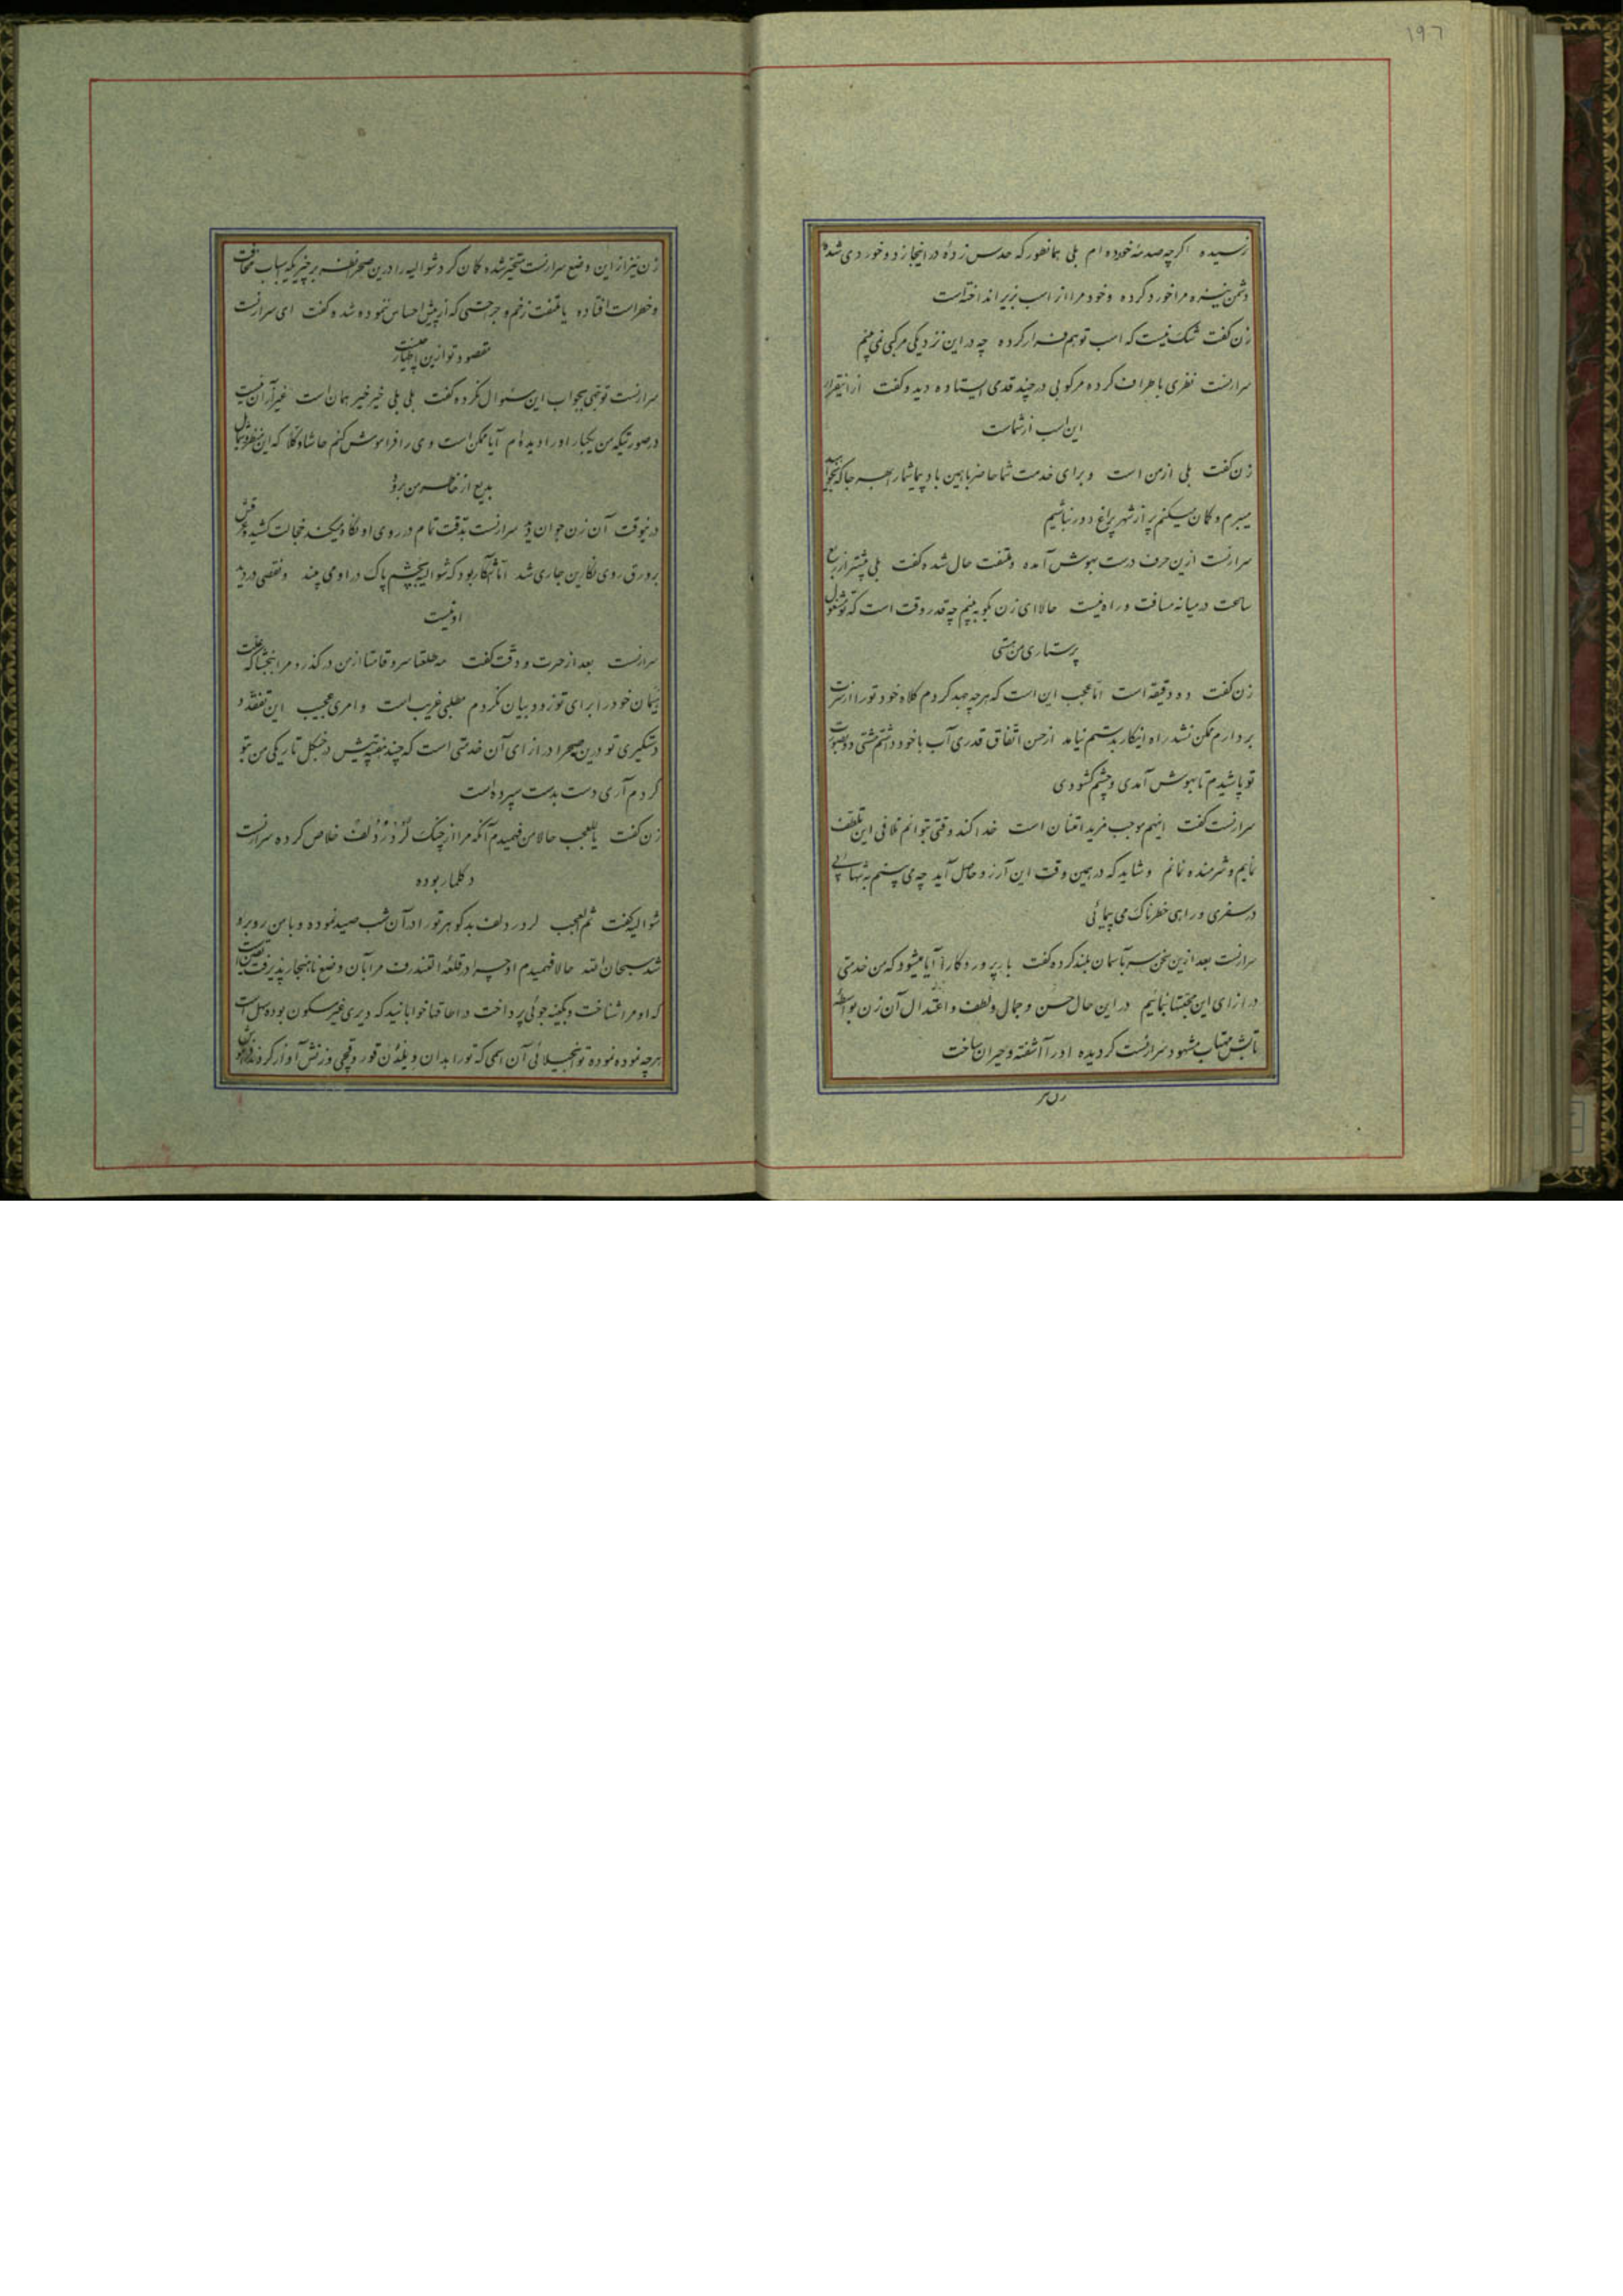 ۱۹۶
نرسیده اگرچه صدمهٔ خورده ام بلی همانطور که حدس زدهٔ در اینجا زد و خوردی شده
دشمن نیزه مرا خورد کرده و خود مرا از اسب بزیر انداخته است
زن گفت شک نیست که اسب تو هم فرار کرده چه در این نزدیکی مرکبی نمی بینم
سرارنست نظری باطراف کرده مرکوبی در چند قدمی ایستاده دید و گفت ازینقرار
این اسب از شماست
زن گفت بلی از من است و برای خدمت شما حاضر با همین باد پیما شما را بهر جا که بخواهید
میبرم و گمان میکنم پر از شهر پراغ دور نباشیم
سرارنست ازین حرف درست بهوش آمده و ملتفت حال شده گفت بلی بیشتر از ربع
ساعت در میانه مسافت و راه نیست حالا ای زن بگو ببینم چه قدر وقت است که تو مشغول
پرستاری من هستی
زن گفت ده دقیقه است اما عجب این است که هر چه جهد کردم کلاه خود تو را از سرت
بردارم ممکن نشد راه اینکار بدستم نیامد از حسن اتفاق قدری آب با خود داشتم مشتی دو بصورت
تو پاشیدم تا بهوش آمدی و چشم گشودی
سرارنست گفت اینهم موجب مزید امتنان است خدا کند وقتی بتوانم تلافی این تلطف
نمایم و شرمنده نمانم و شاید که در همین وقت این آرزو حاصل آید چه می بینم به تنهائی
در سفری و راهی خطرناک می پیمائی
سرارنست بعد ازین سخن سر بآسمان بلند کرده گفت بار پروردگارا آیا میشود که من خدمتی
در ازای این محبتها بنمایم در این حال حسن و جمال و لطف و اعتدال آن زن بواسطه
تابش مهتاب مشهود سرارنست گردیده او را آشفته و حیران ساخت
زن نیز
زن نیز از این وضع سرارنست متحیر شده گمان کرد شوالیه را درین صحرا نظر بر چیزیکه اسباب مخافت
و خطر است افتاده یا ملتفت زخم و جراحتی که از پیش احساس ننموده شده گفت ای سرارنست
مقصود تو ازین اظهار چیست
سرارنست توجهی بجواب این سئوال نکرده گفت بلی بلی خیر خیر همان است غیر از آن نیست
در صورتیکه من یکبار او را دیده ام آیا ممکن است وی را فراموش کنم حاشا و کلا که این منظر و شمایل
بدیع از خاطر من برود
در نیوقت آن زن جوان دید سرارنست بدقت تمام در روی او نگاه میکند خجالت کشیده عرقش
بر ورق روی نگارین جاری شد اما آشکار بود که شوالیه بچشم پاک در او می بیند و نقصی در دید
او نیست
سرارنست بعد از حیرت و دقت گفت مه طلعتا سرو قامتا از من درگذر و مرا ببخشا که علت
هیمان خود را برای تو زود بیان نکردم مطلبی غریب است و امری عجیب این تفقد و
دستگیری تو درین صحرا در ازای آن خدمتی است که چند هفته پیش در جنگل تاریکی من بتو
کردم آری دست بدست سپرده است
زن گفت یا للعجب حالا من فهمیدم آنکه مرا از چنگ لرد ردلف خلاص کرده سرارنست
دکلمار بوده
شوالیه گفت ثم العجب لرد ردلف بدگوهر تو را در آن شب صید نموده و با من روبرو
شد سبحان الله حالا فهمیدم او چرا در قلعه التندرف مرا بآن وضع ناهنجار پذیرفت
که او مرا شناخت و بکینه جوئی پرداخت و اطاقها خوابانید که دیری غیر مسکون بوده سهل است
هرچه نموده نموده تو آن اسمی که تو را بدان